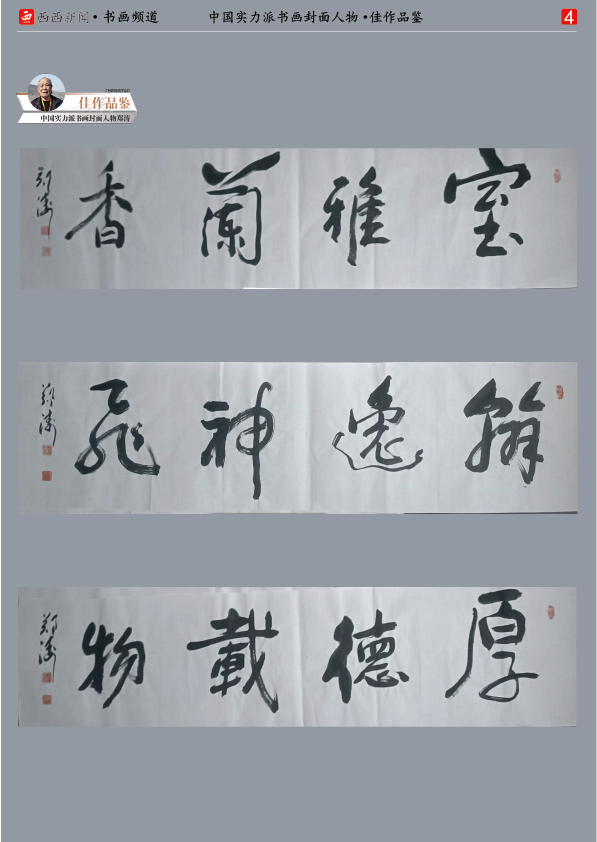 西西新闻·书画频道
中国实力派书画封面人物·佳作品鉴
4
佳作品鉴
中国实力派书画封面人物郑涛
室雅兰香
郑涛
翰逸神飞
郑涛
厚德载物
郑涛